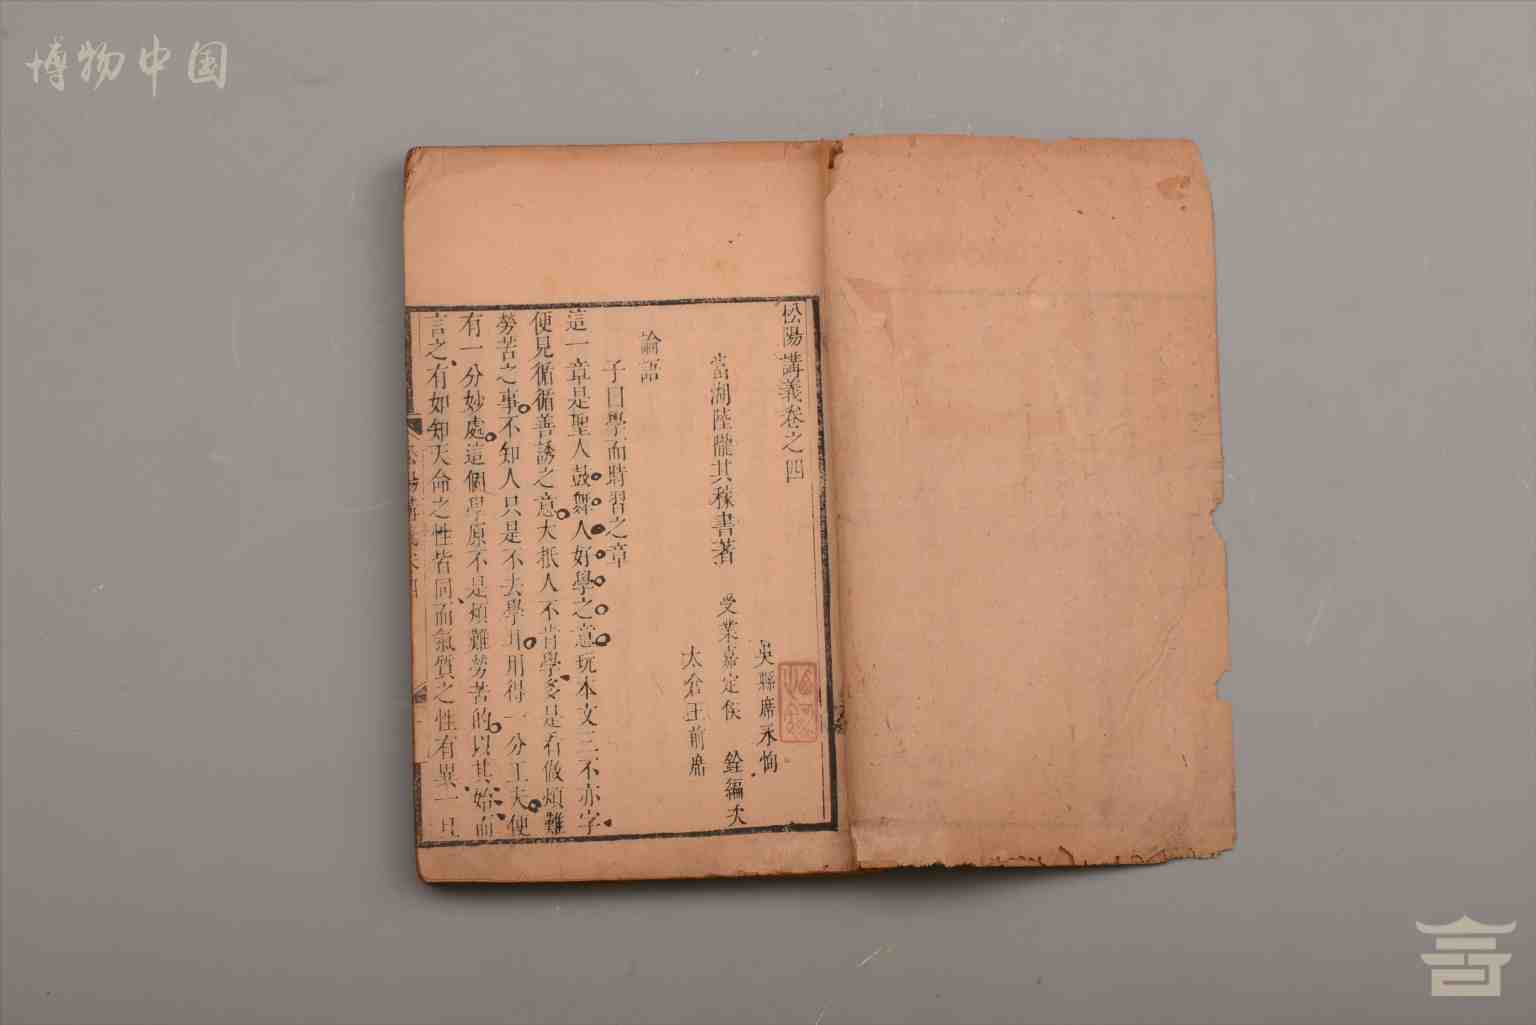 博物中国
松陽講義卷之四
吳縣席永恂
當湖陸隴其稼書著 受業嘉定侯 銓編次
太倉王前席
論語
子曰學而時習之章
這一章是聖人鼓舞人好學之意玩本文三不亦字
便見循循善誘之意大抵人不肯學多是看做煩難
勞苦之事不知人只是不去學耳用得一分工夫便
有一分妙處這個學原不是煩難勞苦的以其始而
言之有如知天命之性皆同而氣質之性有異一旦